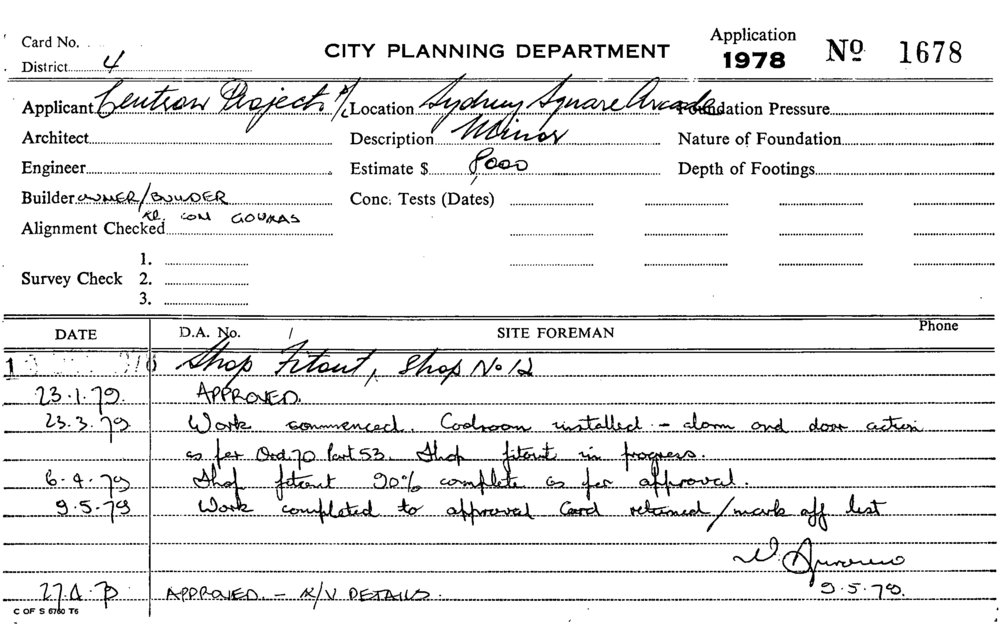 Card No.
District 4
CITY PLANNING DEPARTMENT
Application
1978
No 1678
Applicant Centron Projects P/L
Location Sydney Square Arcade
Foundation Pressure
Architect
Description Minor
Nature of Foundation
Engineer
Estimate $ 8000
Depth of Footings
Builder OWNER/BUILDER
Conc. Tests (Dates)
CON GOURAS
Alignment Checked
Survey Check
1.
2.
3.
DATE D.A. No. / SITE FOREMAN Phone
1 Shop Fitout, Shop No 12
23.1.79. APPROVED.
23.3.79 Work commenced. Coolroom installed - alarm and door action
as per Ord 70 Part 53. Shop fitout in progress.
6.4.79 Shop fitout 90% complete as per approval.
9.5.79 Work completed to approval Card retained/mark off list
W.
9.5.79.
APPROVED. - K/V DETAILS.
C OF S 6760 T6